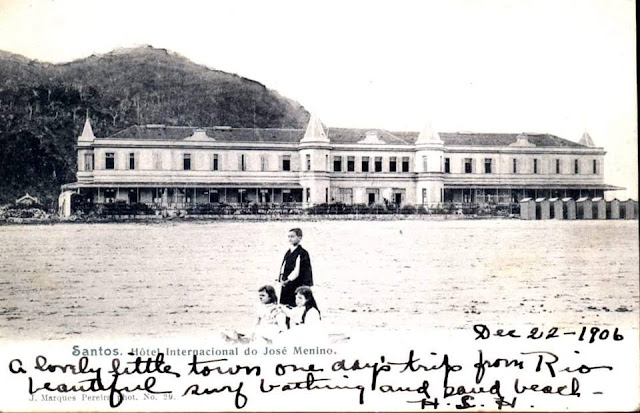 Dec 22-1906
Santos. Hôtel Internacional do José Menino.
A lovely little town one day's trip from Rio
beautiful surf bathing and sand beach-
J. Marques Pereira phot. No. 29.
H. L. H.